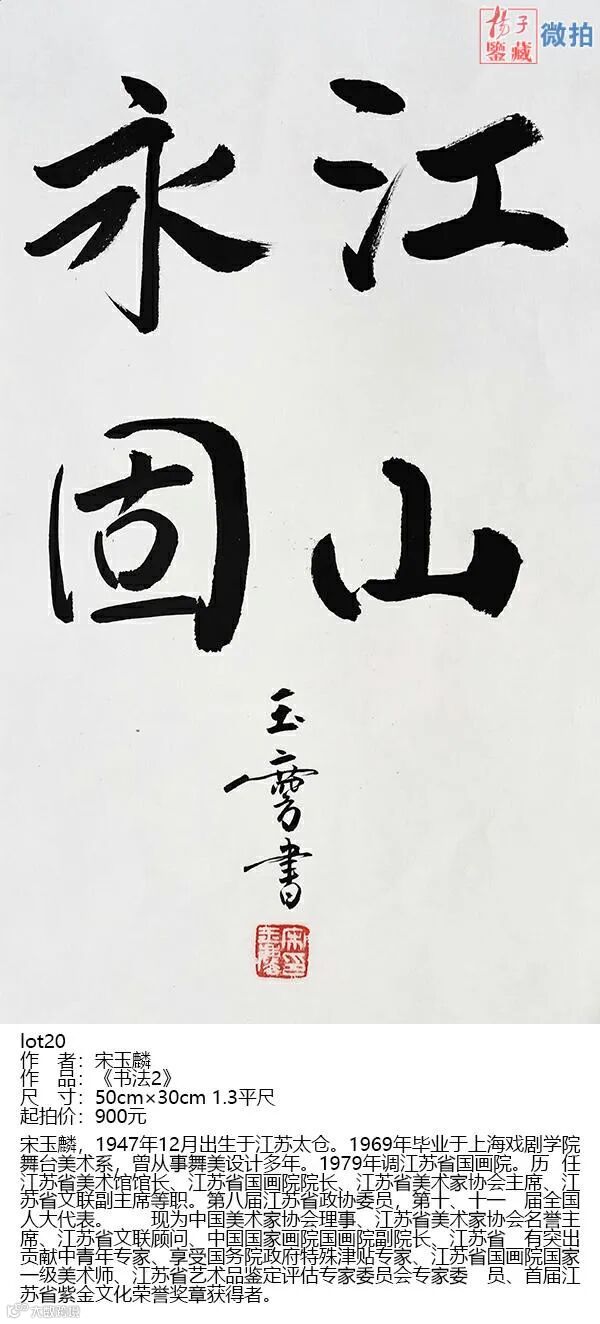 揚子
鑒藏
微拍
江山
永固
玉麐書
lot20
作　者：宋玉麟
作　品：《书法2》
尺　寸：50cm×30cm 1.3平尺
起拍价：900元
宋玉麟，1947年12月出生于江苏太仓。1969年毕业于上海戏剧学院
舞台美术系，曾从事舞美设计多年。1979年调江苏省国画院。历　任
江苏省美术馆馆长、江苏省国画院院长、江苏省美术家协会主席、江
苏省文联副主席等职。第八届江苏省政协委员，第十、十一　届全国
人大代表。　　现为中国美术家协会理事、江苏省美术家协会名誉主
席、江苏省文联顾问、中国国家画院国画院副院长、江苏省　有突出
贡献中青年专家、享受国务院政府特殊津贴专家、江苏省国画院国家
一级美术师、江苏省艺术品鉴定评估专家委员会专家委　员、首届江
苏省紫金文化荣誉奖章获得者。